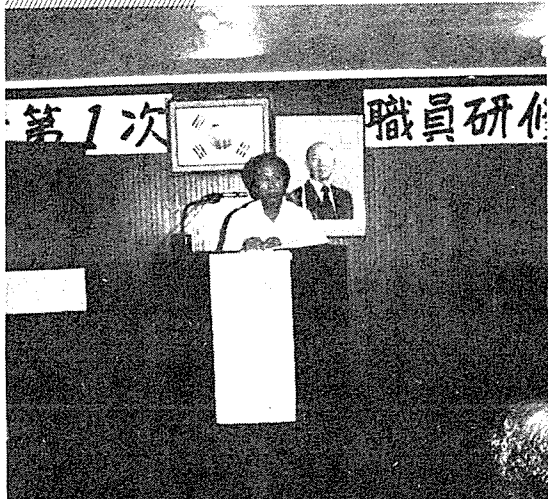 第1次 職員研修